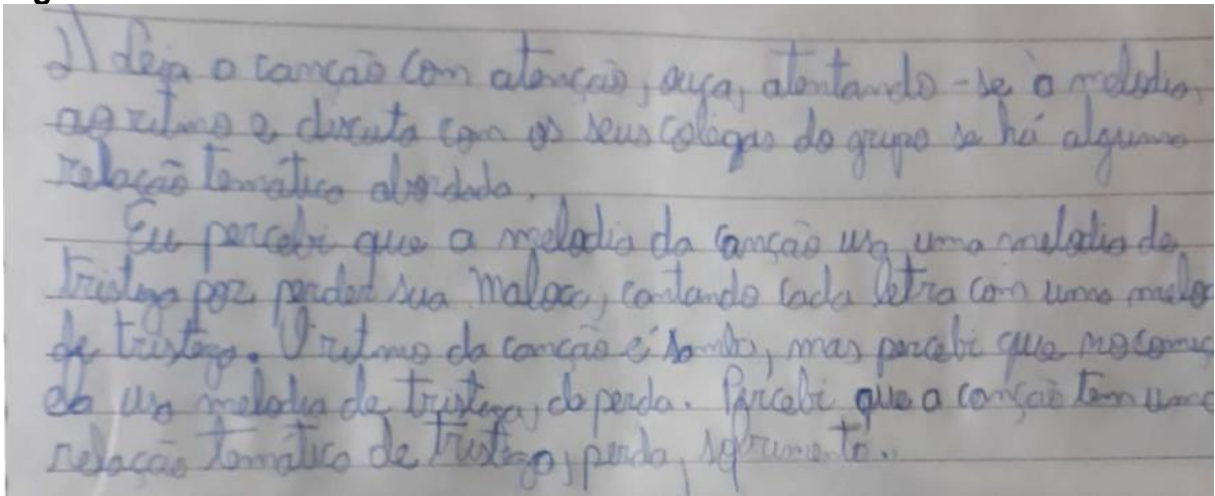 2) Leia a canção com atenção, ouça, atentando-se à melodia,
ao ritmo e discuta com os seus colegas do grupo se há alguma
relação temática abordada.
Eu percebi que a melodia da canção usa uma melodia de
tristeza por perder sua maloca, cantando cada letra com uma melo
de tristeza. O ritmo da canção é samba, mas percebi que
ela usa melodia de tristeza, da perda. Percebi que a canção tem uma
relação temática de tristeza, perda, sofrimento.